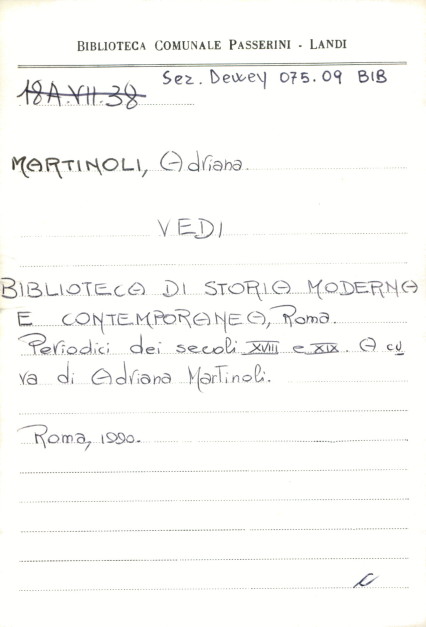 BIBLIOTECA COMUNALE PASSERINI - LANDI
Sez. Dewey 075.09 BIB
18A.VII.38
MARTINOLI, Adriana.
VEDI
BIBLIOTECA DI STORIA MODERNA
E CONTEMPORANEA, Roma.
Periodici dei secoli XVIII e XIX. A cu
ra di Adriana Martinoli.
Roma, 1990.